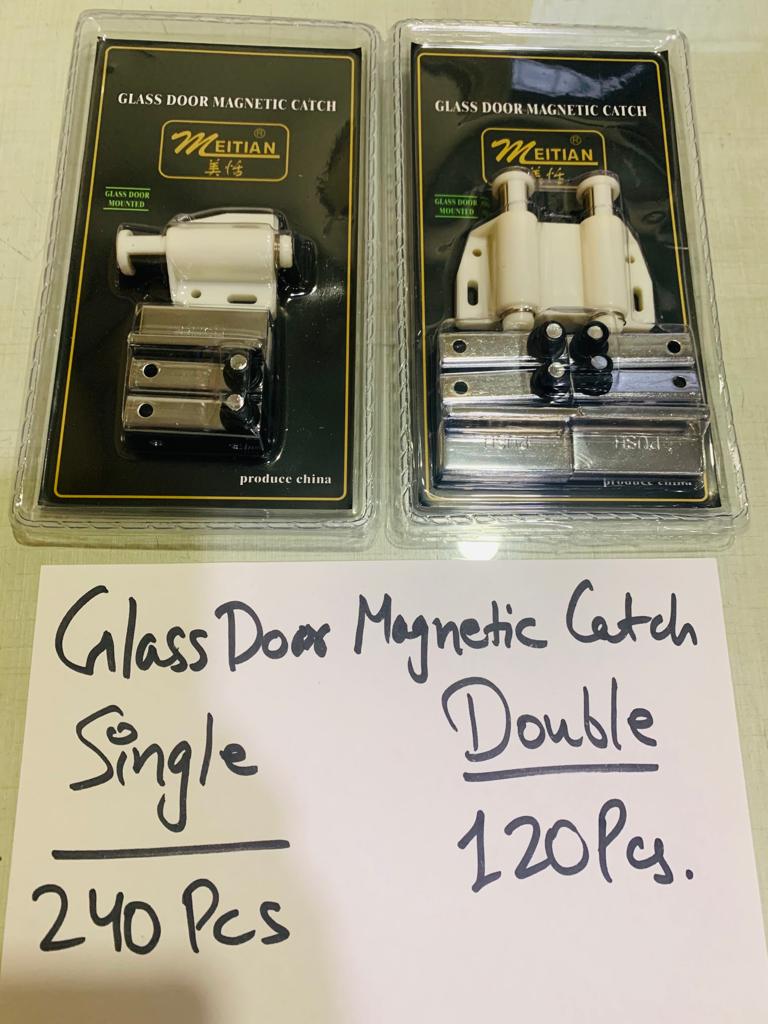 GLASS DOOR MAGNETIC CATCH
MEITIAN®
美恬
GLASS DOOR
MOUNTED
produce china
GLASS DOOR MAGNETIC CATCH
MEITIAN®
美恬
GLASS DOOR
MOUNTED
PUSH
PUSH
produce china
Glass Door Magnetic Catch
Single
240 Pcs
Double
120 Pcs.